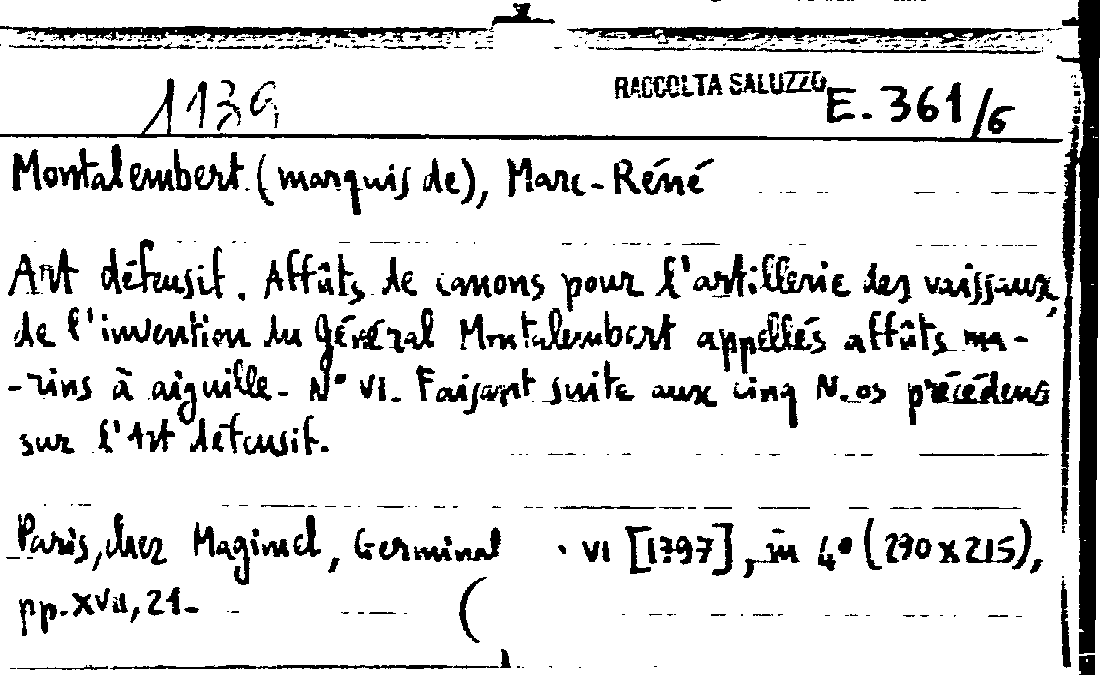 1139 RACCOLTA SALUZZO E. 361/6
Montalembert (marquis de), Marc-Réné
Art défensif. Affûts de canons pour l'artillerie des vaissaux,
de l'invention du Général Montalembert appellés affûts ma-
-rins à aiguille. N° VI. Faisant suite aux cinq N.os précédens
sur l'Art défensif.
Paris, chez Magimel, Germinal VI [1797], in 4° (290x215),
pp. XVII, 21.